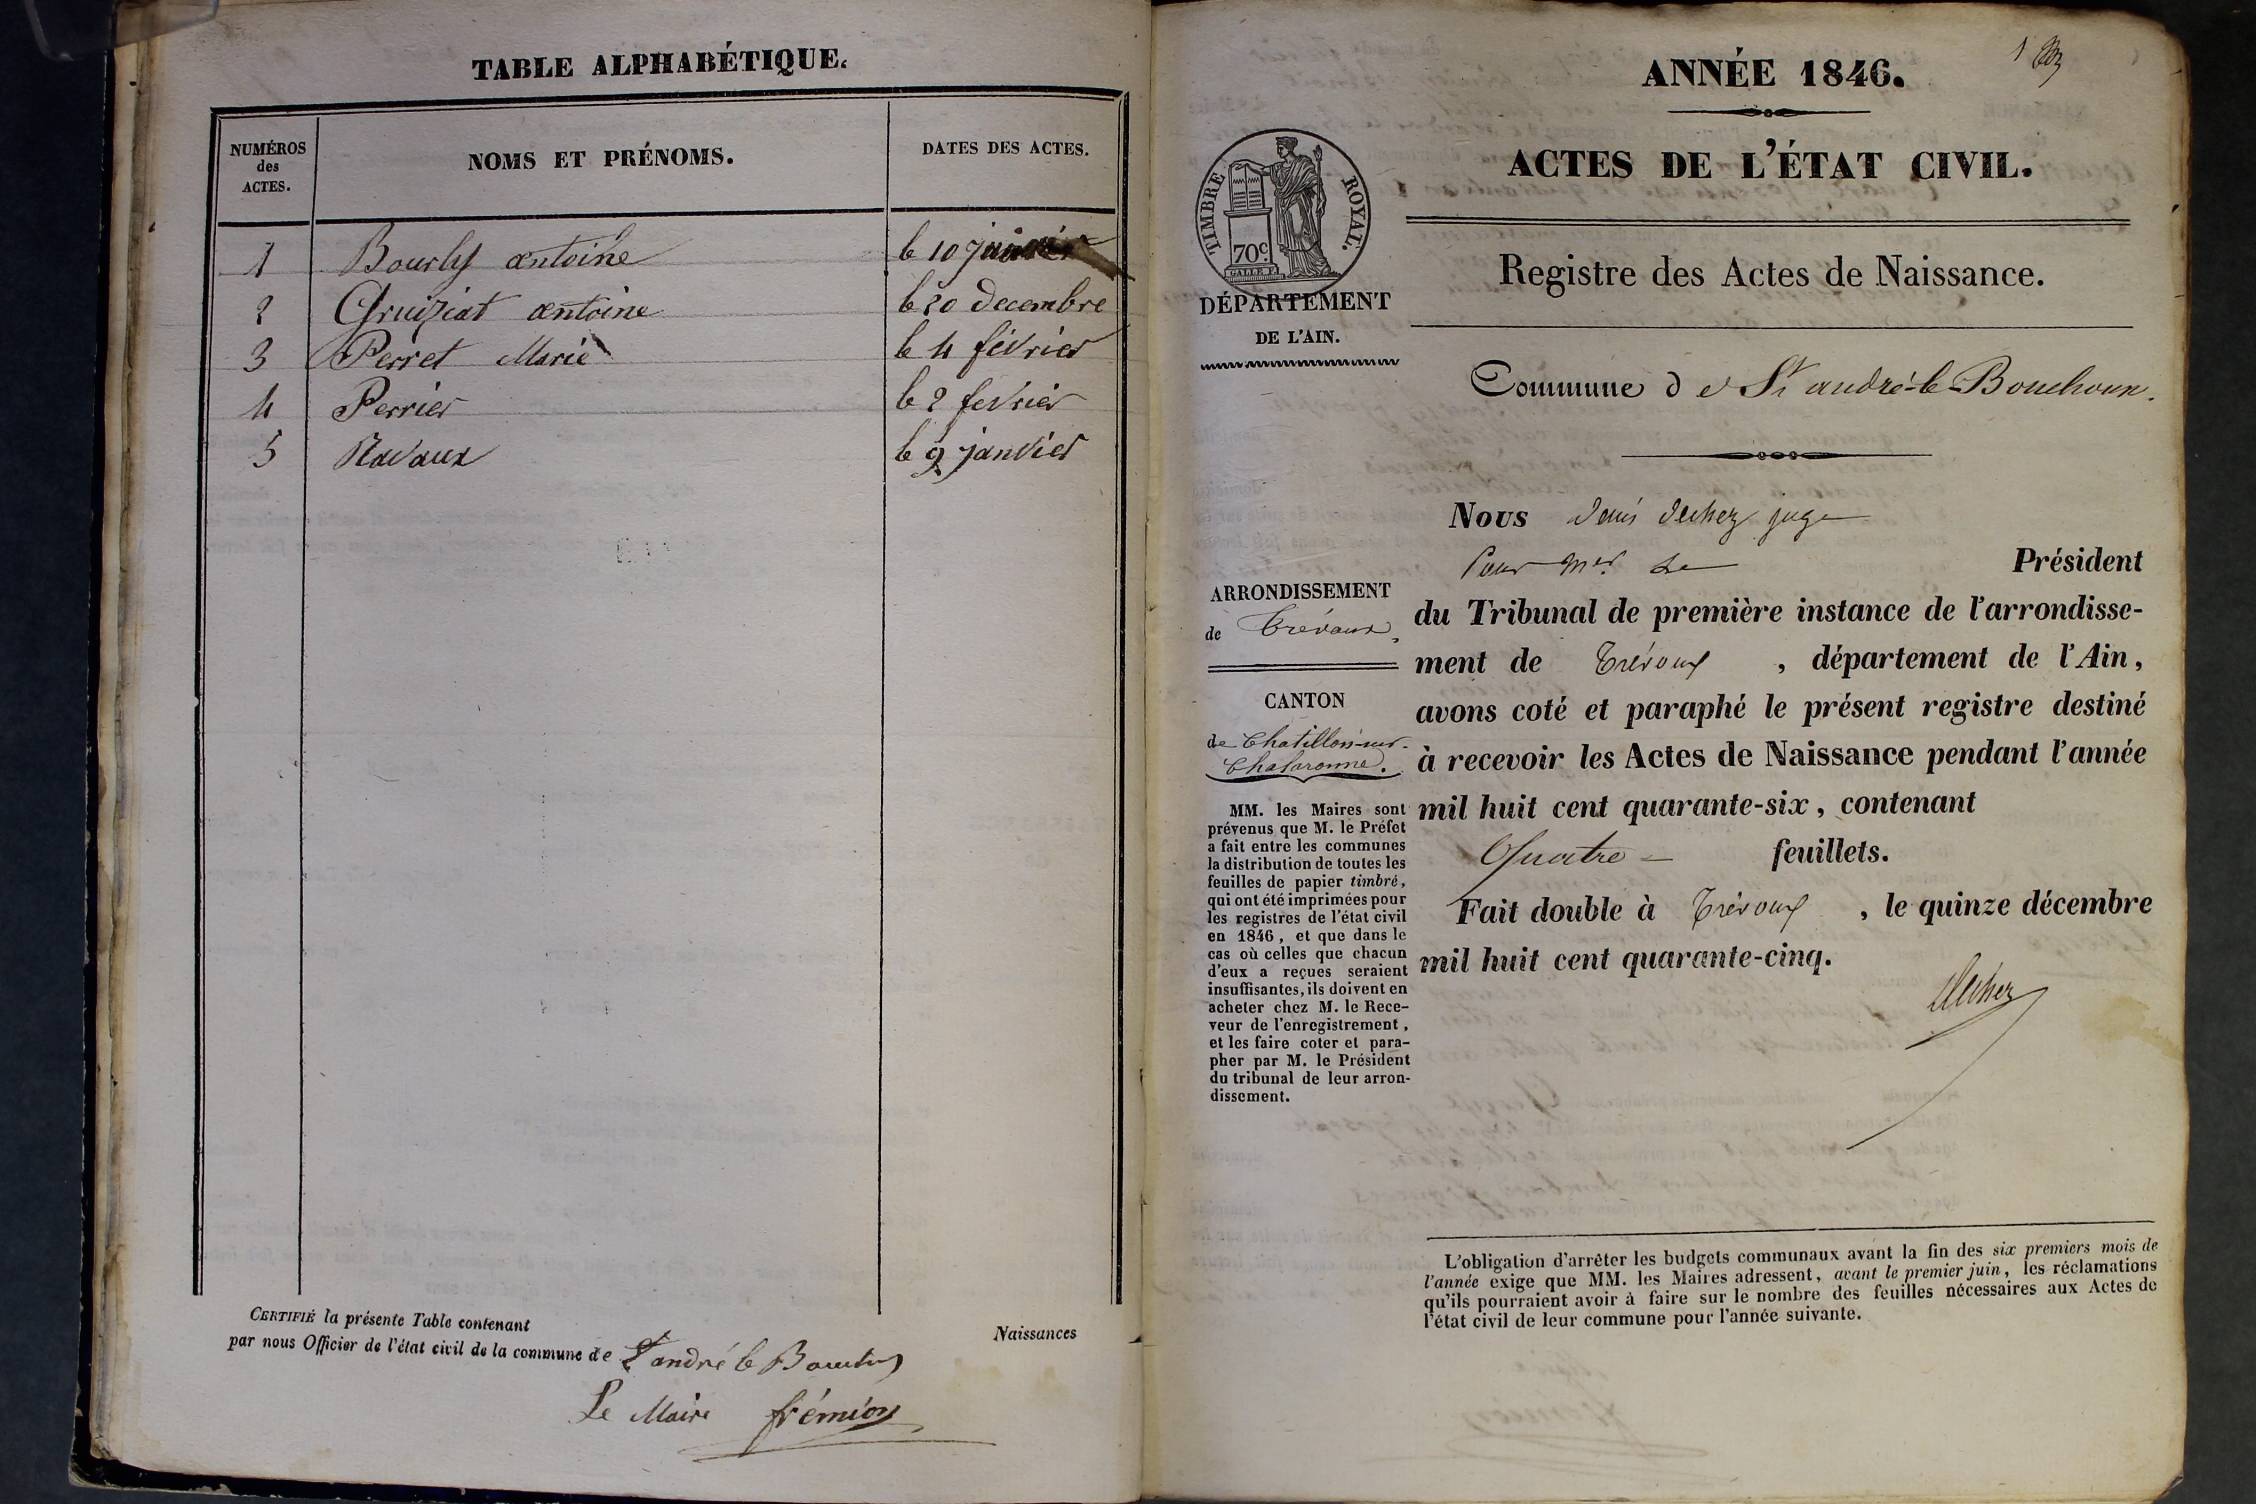 TABLE ALPHABÉTIQUE.
NUMÉROS des ACTES.
NOMS ET PRÉNOMS.
DATES DES ACTES.
1 Bourly antoine le 10 janvier
2 Gruiziat antoine le 20 decembre
3 Perret Marie le 4 février
4 Perrier le 2 fevrier
5 Ravaux le 9 janvier
CERTIFIÉ la présente Table contenant Naissances
par nous Officier de l'état civil de la commune de St andré le Bouchoux
Le Maire frémion
1
ANNÉE 1846.
ACTES DE L'ÉTAT CIVIL.
TIMBRE ROYAL.
70c.
DÉPARTEMENT
DE L'AIN.
Registre des Actes de Naissance.
Commune de St andré-le-Bouchoux.
ARRONDISSEMENT
de Trévoux.
CANTON
de Chatillon-sur-
Chalaronne.
MM. les Maires sont
prévenus que M. le Préfet
a fait entre les communes
la distribution de toutes les
feuilles de papier timbré,
qui ont été imprimées pour
les registres de l'état civil
en 1846, et que dans le
cas où celles que chacun
d'eux a reçues seraient
insuffisantes, ils doivent en
acheter chez M. le Rece-
veur de l'enregistrement,
et les faire coter et para-
pher par M. le Président
du tribunal de leur arron-
dissement.
Nous juge
Pour Mr le Président
du Tribunal de première instance de l'arrondisse-
ment de Trévoux, département de l'Ain,
avons coté et paraphé le présent registre destiné
à recevoir les Actes de Naissance pendant l'année
mil huit cent quarante-six, contenant
Quatre feuillets.
Fait double à Trévoux, le quinze décembre
mil huit cent quarante-cinq.
L'obligation d'arrêter les budgets communaux avant la fin des six premiers mois de
l'année exige que MM. les Maires adressent, avant le premier juin, les réclamations
qu'ils pourraient avoir à faire sur le nombre des feuilles nécessaires aux Actes de
l'état civil de leur commune pour l'année suivante.